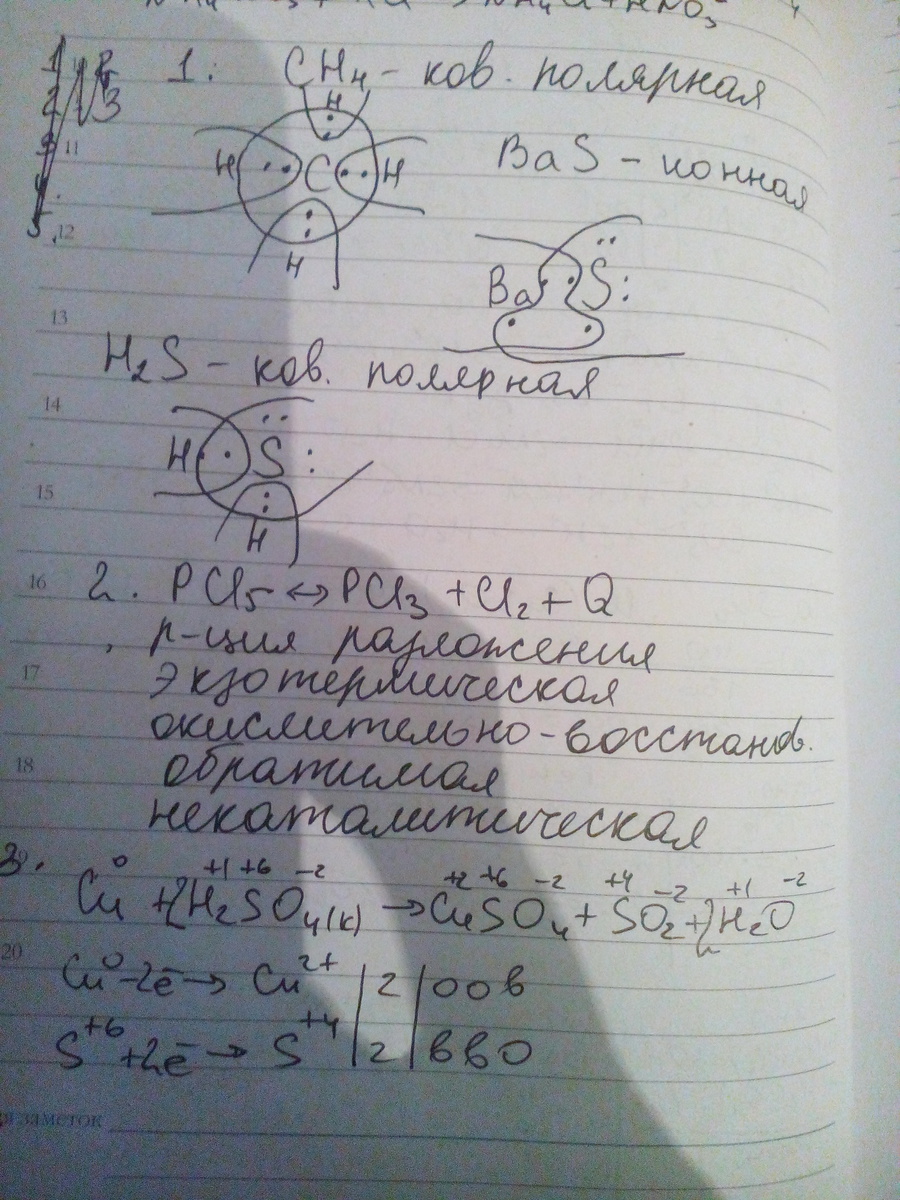 1. CH₄ - ков. полярная
H
H C H
H
BaS - ионная
Ba S
H₂S - ков. полярная
H S
H
2. PCl₅ ↔ PCl₃ + Cl₂ + Q
р-ция разложения
экзотермическая
окислительно-восстанов.
обратимая
некаталитическая
3. 0 +1 +6 -2 +2 +6 -2 +4 -2 +1 -2
Cu + 2H₂SO₄(к) → CuSO₄ + SO₂ + 2H₂O
Cu⁰ - 2ē → Cu²⁺ | 2 | оов
S⁺⁶ + 2ē → S⁺⁴ | 2 | вво
11
12
13
14
15
16
17
18
20
я заметок